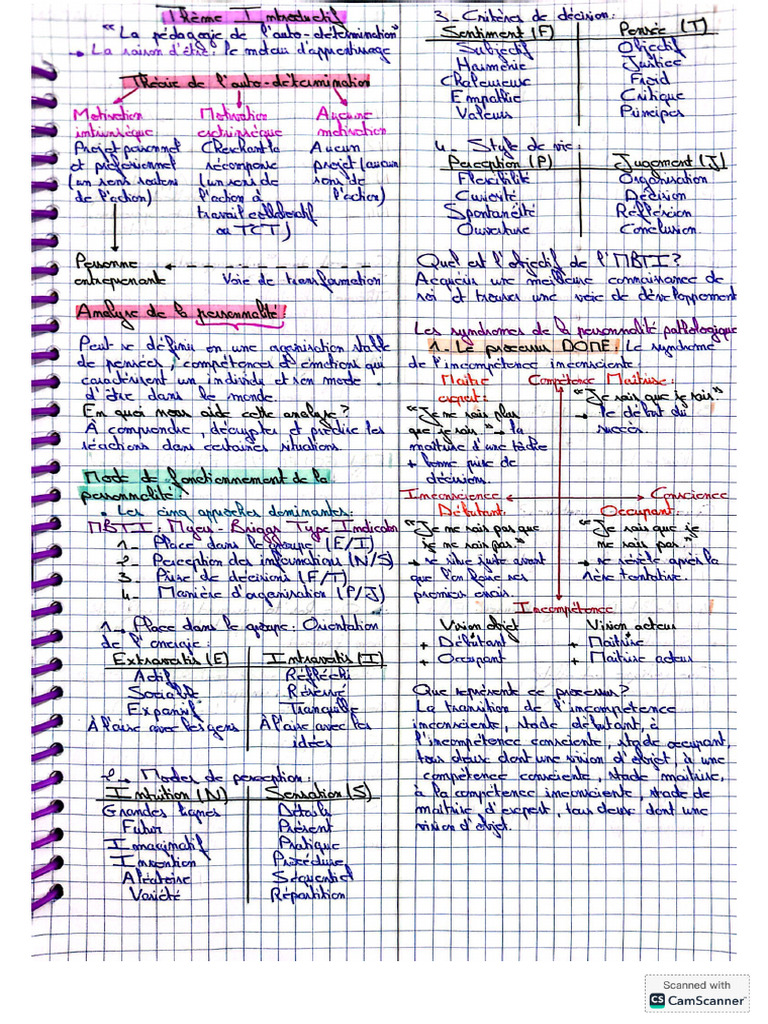 Thème Introductif
"La pédagogie de l'auto-détermination"
→ La raison d'être : le moteur d'apprentissage
Théorie de l'auto-détermination
Motivation intrinsèque
Projet personnel et professionnel (un sens soutenu de l'action)
Motivation extrinsèque
Cherchant la récompense (un sens de l'action à travail collaboratif ou TCT)
Aucune motivation
Aucun projet (aucun sens de l'action)
Personne entreprenante
Voie de transformation
Analyse de la personnalité :
Peut se définir en une organisation stable
de pensées, compétences et émotions qui
caractérisent un individu et son mode
d'être dans le monde.
En quoi nous aide cette analyse ?
À comprendre, décrypter et prédire les
réactions dans certaines situations.
Mode de fonctionnement de la
personnalité :
• Les cinq approches dominantes :
MBTI : Myers Briggs Type Indicator
1- Place dans le groupe (E/I)
2- Perception des informations (N/S)
3- Prise de décisions (F/T)
4- Manière d'organisation (P/J)
1- Place dans le groupe : Orientation
de l'énergie :
Extravertis (E) Intravertis (I)
Actif Réfléchi
Sociable Réservé
Expansif Tranquille
À l'aise avec les gens À l'aise avec les
idées
2- Modes de perception :
Intuition (N) Sensation (S)
Grandes lignes Détails
Futur Présent
Imaginatif Pratique
Invention Procédure
Aléatoire Séquentiel
Variété Répartition
3- Critères de décision :
Sentiment (F) Pensée (T)
Subjectif Objectif
Harmonie Justice
Chaleureuse Froid
Empathie Critique
Valeurs Principes
4- Style de vie :
Perception (P) Jugement (J)
Flexibilité Organisation
Curiosité Décision
Spontanéité Réfléxion
Ouverture Conclusion
Quel est l'objectif de l'MBTI ?
Acquérir une meilleure connaissance de
soi et trouver une voie de développement
Les syndromes de la personnalité pathologique
1- Le processus DOME : Le syndrome
de l'incompétence inconsciente
Compétence
Maître expert :
"Je ne sais plus
que je sais" → la
maîtrise d'une tâche
+ bonne prise de
décisions.
Maitrise :
"Je sais que je sais"
→ le début du
succès.
Inconscience Conscience
Débutant.
"Je ne sais pas que
je ne sais pas."
→ se situe juste avant
que l'on fasse ses
premiers essais.
Occupant :
"Je sais que je
ne sais pas."
→ se révèle après la
1ère tentative.
Incompétence
Vision objet Vision acteur
+ Débutant + Maitrise
+ Occupant + Maitrise acteur
Que représente ce processus ?
La transition de l'incompétence
inconsciente, stade débutant, à
l'incompétence consciente, stade occupant,
tous deux dont une vision d'objet, à une
compétence consciente, stade maitrise,
à la compétence inconsciente, stade de
maitrise d'expert, tous deux dont une
vision d'objet.
Scanned with
CS CamScanner